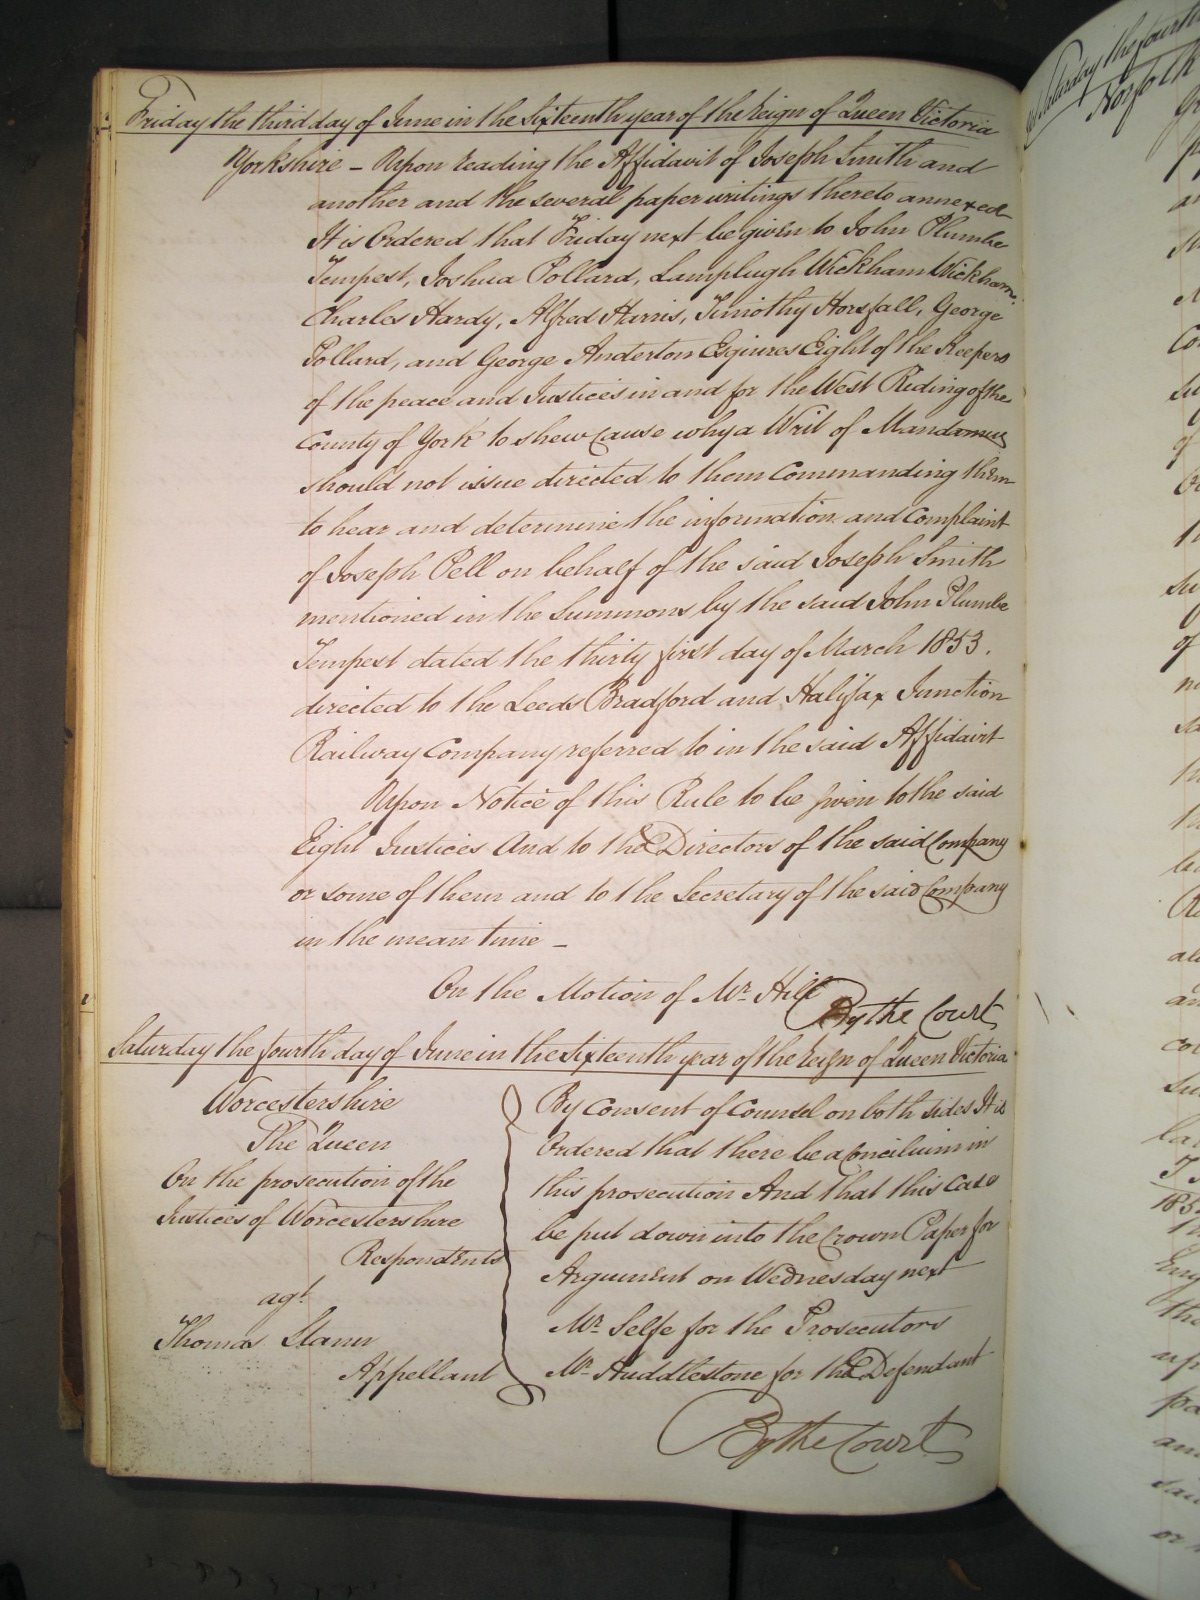 Friday the third day of June in the Sixteenth year of the Reign of Queen Victoria
Yorkshire – Upon reading the Affidavit of Joseph Smith and
another and the several paper writings thereto annexed
It is Ordered that Friday next be given to John Plumbe
Tempest, Joshua Pollard, Lamplugh Wickham Wickham,
Charles Hardy, Alfred Harris, Timothy Horsfall, George
Pollard, and George Anderton Esqiures Eight of the Keepers
of the peace and Justices in and for the West Riding of the
County of York to shew Cause why a Writ of Mandamus
should not issue directed to them Commanding them
to hear and determine the information and Complaint
of Joseph Pell on behalf of the said Joseph Smith
mentioned in the Summons by the said John Plumbe
Tempest dated the thirty first day of March 1853.
directed to the Leeds Bradford and Halifax Junction
Railway Company referred to in the said Affidavit
Upon Notice of this Rule to be given to the said
Eight Justices And to the Directors of the said Company
or some of them and to the Secretary of the said Company
in the mean time –
On the Motion of Mr. Hill
By the Court
Saturday the fourth day of June in the Sixteenth year of the Reign of Queen Victoria
Worcestershire
The Queen
On the prosecution of the
Justices of Worcestershire
Respondents
agt.
Thomas
Appellant
By Consent of Counsel on both sides It is
Ordered that there be a Concilium in
this prosecution And that this Case
be put down into the Crown Paper for
Argument on Wednesday next
Mr. Selfe for the Prosecutors
Mr. Huddlestone for the Defendant
By the Court
Saturday the fourth
Norfolk